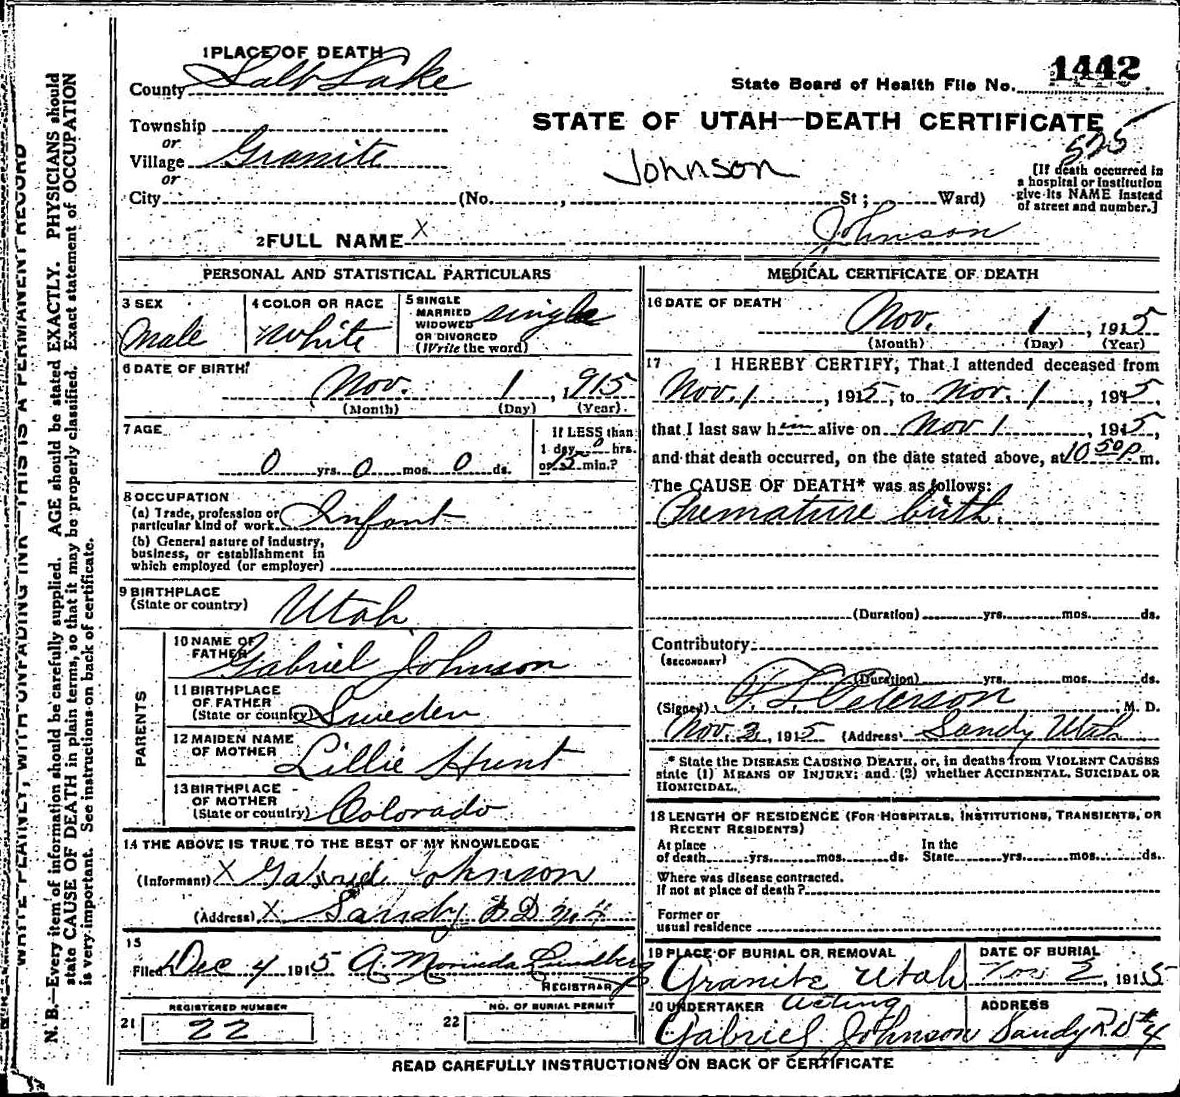 1 PLACE OF DEATH
County Salt Lake
State Board of Health File No. 1442
STATE OF UTAH—DEATH CERTIFICATE
Township
or
Village Granite
or
City (No. , St ; Ward)
Johnson
525
[If death occurred in
a hospital or institution
give its NAME instead
of street and number.]
2 FULL NAME X Johnson
PERSONAL AND STATISTICAL PARTICULARS
3 SEX
Male
4 COLOR OR RACE
White
5 SINGLE
MARRIED
WIDOWED
OR DIVORCED
(Write the word)
single
6 DATE OF BIRTH
Nov. 1, 1915
(Month) (Day) (Year)
7 AGE
0 yrs. 0 mos. 0 ds.
If LESS than
1 day, 0 hrs.
or 15 min.?
8 OCCUPATION
(a) Trade, profession or
particular kind of work Infant
(b) General nature of industry,
business, or establishment in
which employed (or employer)
9 BIRTHPLACE
(State or country) Utah
PARENTS
10 NAME OF
FATHER Gabriel Johnson
11 BIRTHPLACE
OF FATHER
(State or country) Sweden
12 MAIDEN NAME
OF MOTHER Lillie Hunt
13 BIRTHPLACE
OF MOTHER
(State or country) Colorado
14 THE ABOVE IS TRUE TO THE BEST OF MY KNOWLEDGE
(Informant) X Gabriel Johnson
(Address) X Sandy
15
Filed Dec 4 1915 A. Lindberg
REGISTRAR
REGISTERED NUMBER
21 22
NO. OF BURIAL PERMIT
22
MEDICAL CERTIFICATE OF DEATH
16 DATE OF DEATH
Nov. 1, 1915
(Month) (Day) (Year)
17 I HEREBY CERTIFY, That I attended deceased from
Nov. 1, 1915, to Nov. 1, 1915,
that I last saw him alive on Nov 1, 1915,
and that death occurred, on the date stated above, at 10 50 P. m.
The CAUSE OF DEATH* was as follows:
Premature birth.
(Duration) yrs. mos. ds.
Contributory
(SECONDARY)
(Duration) yrs. mos. ds.
(Signed) Peterson, M. D.
Nov. 3, 1915 (Address) Sandy Utah
* State the DISEASE CAUSING DEATH, or, in deaths from VIOLENT CAUSES
state (1) MEANS OF INJURY; and (2) whether ACCIDENTAL, SUICIDAL OR
HOMICIDAL.
18 LENGTH OF RESIDENCE (FOR HOSPITALS, INSTITUTIONS, TRANSIENTS, OR
RECENT RESIDENTS)
At place
of death yrs. mos. ds.
In the
State yrs. mos. ds.
Where was disease contracted.
If not at place of death?
Former or
usual residence
19 PLACE OF BURIAL OR REMOVAL
Granite Utah
DATE OF BURIAL
Nov 2, 1915
20 UNDERTAKER Acting
Gabriel Johnson
ADDRESS
Sandy R.D #4
READ CAREFULLY INSTRUCTIONS ON BACK OF CERTIFICATE
WRITE PLAINLY, WITH UNFADING INK—THIS IS A PERMANENT RECORD
N. B.—Every item of information should be carefully supplied. AGE should be stated EXACTLY. PHYSICIANS should
state CAUSE OF DEATH in plain terms, so that it may be properly classified. Exact statement of OCCUPATION
is very important. See instructions on back of certificate.